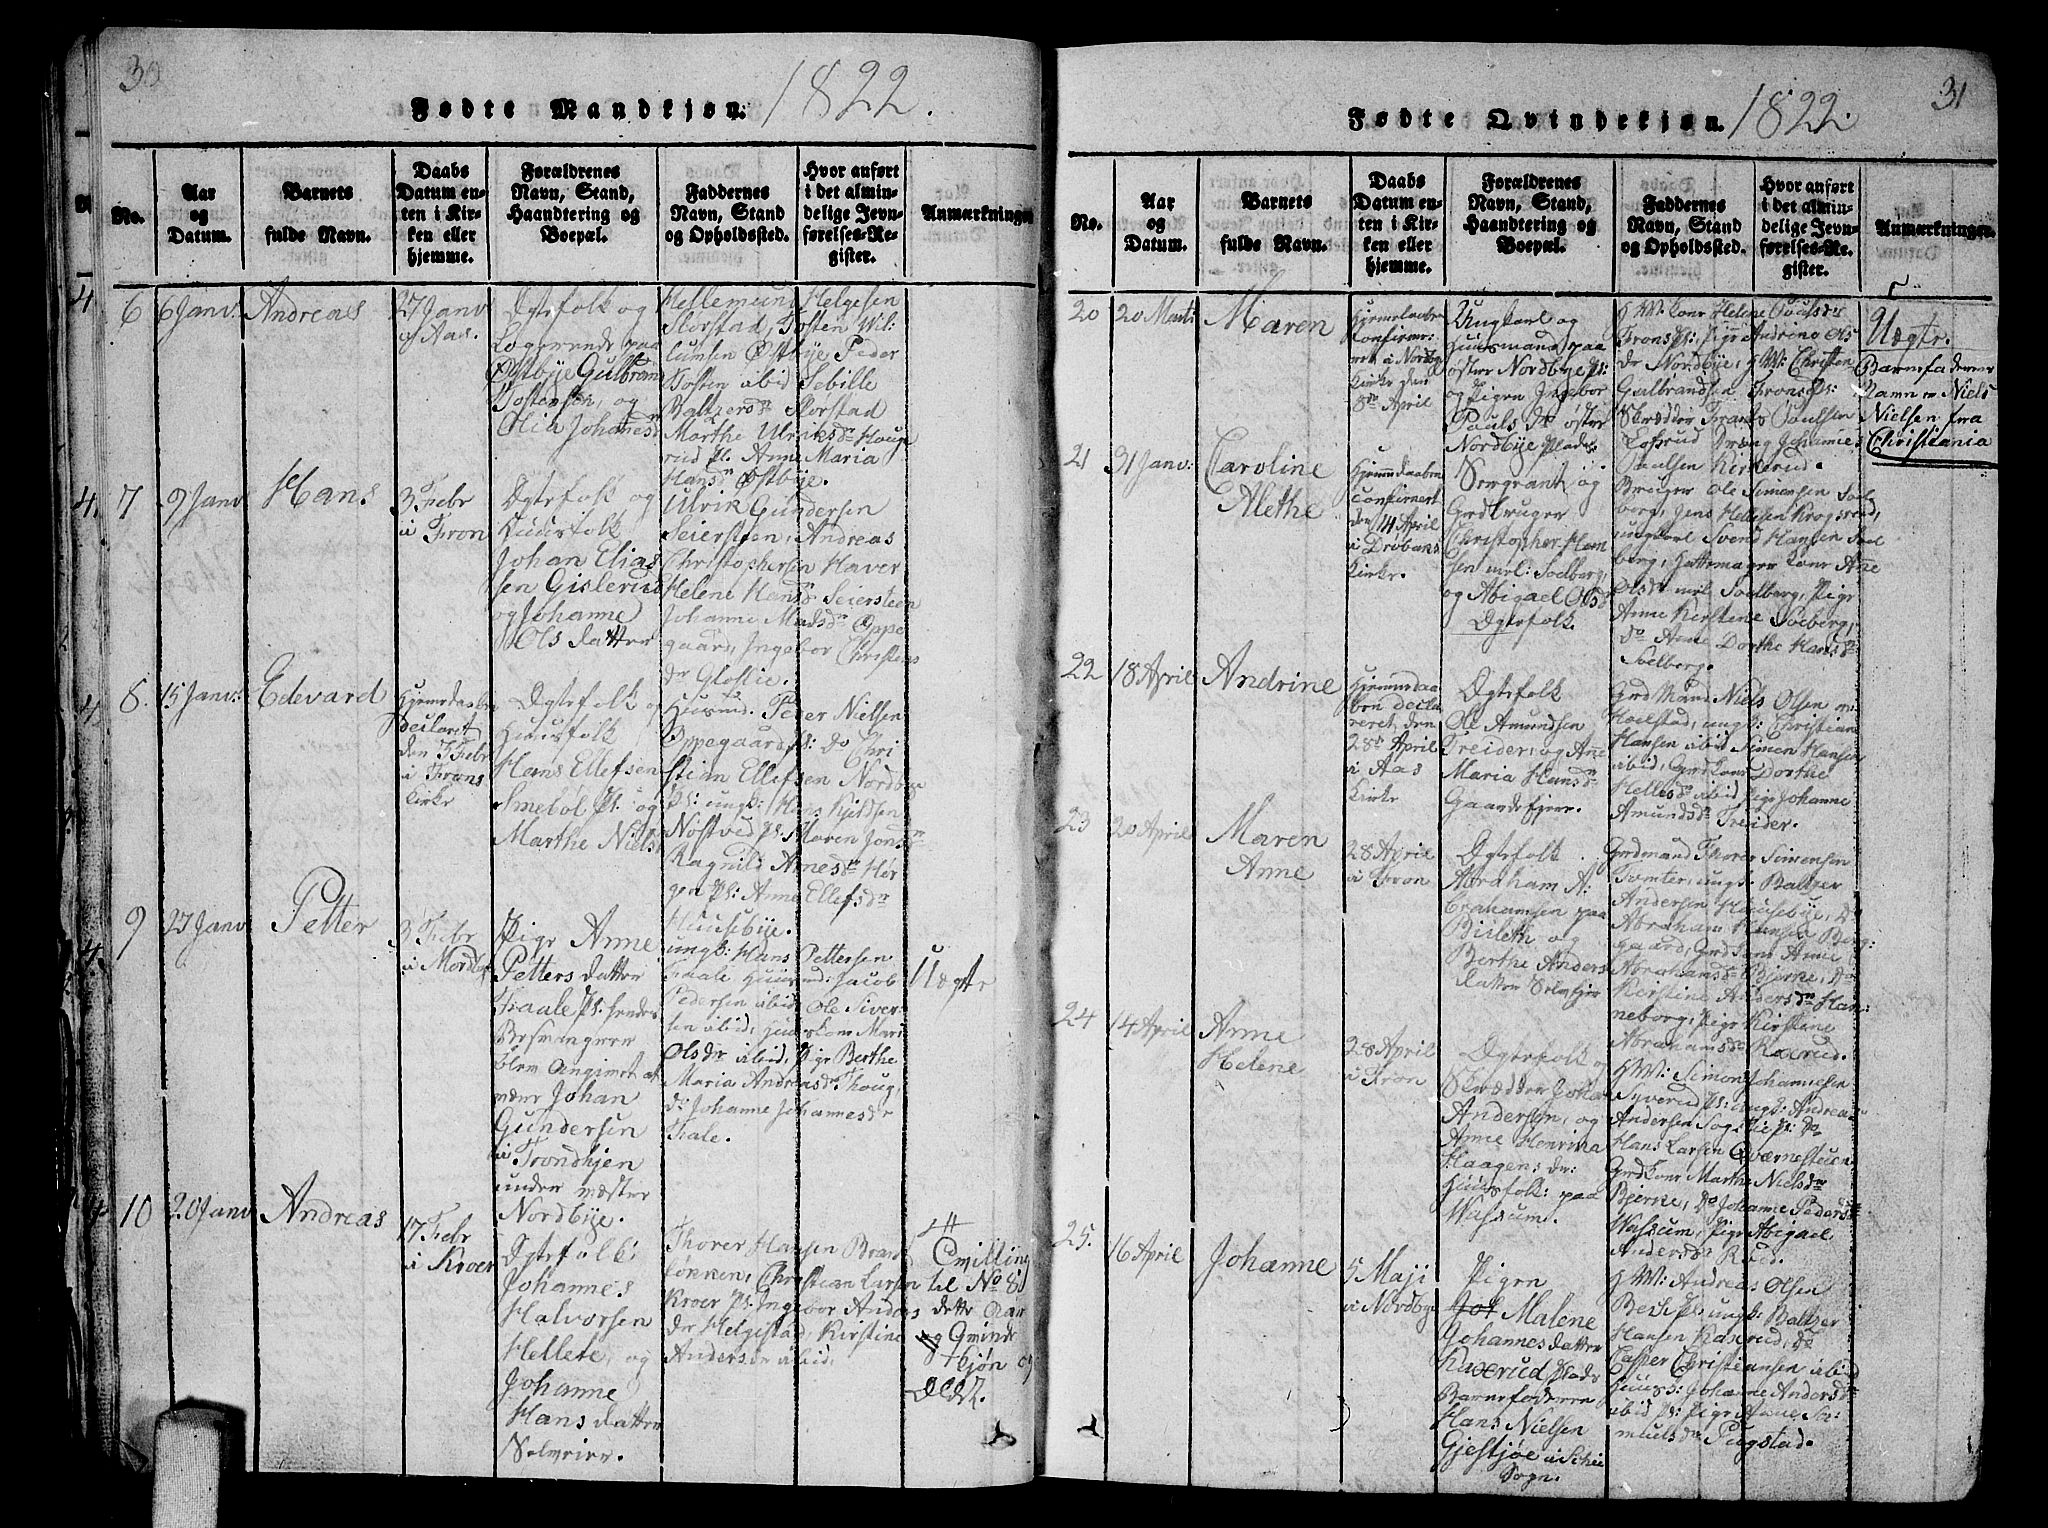 30
Fødte Mandkjøn. 1822.
No.
Aar
og
Datum.
Barnets
fulde Navn.
Daabs
Datum en-
ten i Kir-
ken eller
hjemme.
Forældrenes
Navn, Stand,
Haandtering og
Boepæl.
Faddernes
Navn, Stand
og Opholdssted.
Hvor anført
i det almin-
delige Jevn-
førelses-Re-
gister.
Anmærkninger
6
6 Janv:
Andreas
27 Janv
Aas.
Ægtefolk og
Logerende paa
Østbye Gulbran
Tostensen, og
Olia Johanesd
Hellemund Helgesen
Storstad, Tosten Wil:
lumsen Østbye Peder
Tosten ibid Sebille
Baltzersdr Storstad
Marthe Ulriksdn Houge
rud Pl. Anne Maria
Hansdn Østbye.
7
9 Janv
Hans
3 Febr
i Fron
Ægtefolk og
Huusfolk
Johan Elias
sen Gislerud
og Johanne
Ols datter
Ulrik Gundersen
Seiersteen, Andreas
Christophersen Haver
Helene Hansdn Seiersteen
Johanne Madsdn Oppe
gaard, Ingebor Christens
dr Glostie.
8.
15 Janv:
Edevard
Hjemedaabe
declaret
den Febr
i Frons
Kirke
Ægtefolk og
Huusfolk
Hans Ellefsen
Smebøl Pl: og
Marthe Niels
Huusmd. Peder Nielsen
Oppegaard Pl: do Chri
stian Ellefsen Nordbye
Pl: ungk: Hans Kieldsen
Nøstved Pl: Maren Jonsdn
Ragnild Arnesdn Hør
gen Pl: Anne Ellefsdn
Huusebye.
9
27 Janv
Petter
3 Febr
i Nordby
Pige Anne
Petters datter
Fraale Pl: hendes
Besvangrer
blev angivet at
være Johan
Gundersen
i Trondhjen
under mester
Nordbye.
ungk: Hans Pettersen
Faale Huusmd: Jacob
Pedersen ibid Ole Siver
sen ibid, Huuskone Mari
Olsdr ibid, Pige Berthe
Maria Andreasdr Houg,
do Johanne Johannesdr
Fale.
Uægte
10
20 Janv
Andreas
17 Febr
i Kroer
Ægtefolk:
Johannes
Halvorsen
Hellete, og
Johanne
Hans datter
Solveier.
Thorer Hansen Brand
løkken, Christian Larsen
Kroer Pl: Ingebor Anders
dr Helgistad, Kirstine
Andersdr ibid.
Tvilling
til No 8
dette Aar
og Qvinde
kjøn og
Ældst.
31
Fødte Qvindekjøn. 1822.
No.
Aar
og
Datum.
Barnets
fulde Navn.
Daabs
Datum en-
ten i Kir-
ken eller
hjemme.
Forældrenes
Navn, Stand,
Haandtering og
Boepæl.
Faddernes
Navn, Stand
og Opholdssted.
Hvor anført
i det almin-
delige Jevn-
førelses-Re-
gister.
Anmærkninger.
20
20 Marti
Maren
Hjemedaabe
Confirme:
ret i Nordby
Kirke den
8de April
Ungkarl og
Huusmand paa
øster Nordbye Pl:
og Pigen Ingebor
Pauls dr øster
Nordbye Plads
G.M: Kone Helene Poulsdr
Frons Pl: Pige Andrine Ols
dr Nordbye, G.M: Christen
Gulbrandsen Frons Pl:
Skrædder Frants Poulsen
Løxrud Dreng Johannes
Paulsen Kirkerud.
Uægte.
Barnefaderens
Navn er Niels
Nielsen fra
Christiania
21
31 Janv:
Caroline
Alethe
Hjemmdaaben
Confirmert
den 14 April
i Drøbaks
Kirke.
Sergeant og
Grdbruger
Christopher Han
sen mel: Solberg,
og Abigael Olsdr
Ægtefolk.
Bruger Ole Simensen Sol
berg, Jens Hellesen Krogsrud,
ungkarl Svend Hansen Sol
berg, Hattemager Kone Ane
Olsdr mel Solberg, Pige
Anne Kirstene Solberg,
do Anne Dorthe Hansdn
Solberg.
22
18 April
Andrine
Hjemmedaa
ben decla
reret, den
28de April
i Aas
Kirke
Ægtefolk
Ole Amundsen
Treider, og Ane
Maria Hansdn
Gaardefjere.
Grd Mand Niels Olsen
Holstad, ungk: Christian
Hansen ibid Simen Hansen
ibid, Grdkone Dorthe
Hellesdn ibid Pige Johanne
Amundsdr Treider.
23
20 April
Maren
Anne
28 April
i Fron
Ægtefolk
Abraham A:
brahamsen paa
Birleth og
Berthe Anders
datter Solvfier
Grdmand Thorer Simensen
Tomter, ungk: Baltzer
Andersen Huusebye, do
Abraham Hansen Berg:
gaard, Grdkone Anne
Abrahamsdr Bjerne, do
Kirstine Andersdn Han:
neborg, Pige Kirstene
Abrahamsdr Kaxrud.
24
14 April
Anne
Helene
28 April
i Fron
Ægtefolk og
Skrædder Johan
Andersen, og
Anne Henrica
Haagens dr:
Huusfolk: paa
Wassum.
G.M: Simon Johannesen
Syverud Pl: ungk: Andreas
Andersen Sogstie Pl: do
Hans Larsen Qværnestuen
Grdkone Marthe Nielsdn
Bjerne, do Johanne Pedersdn
Wassum, Pige Abigael
Andersdr Rud.
25.
16 April
Johanne
5 Maji
i Nordbye
Pigen
Joh Malene
Johannes datter
Kaxrud Plads
Barnefaderen
Hans Nielsen
Gjestjøe i Schie
Sogn.
G.M: Andreas Olsen
Bech Pl: ungk: Baltzer
Hansen Kaxrud, do
Casper Christiansen ibid
Huusk: Johanne Andersdn
ibid Pl: Pige Anne Sa:
muelsdn Pugstad.